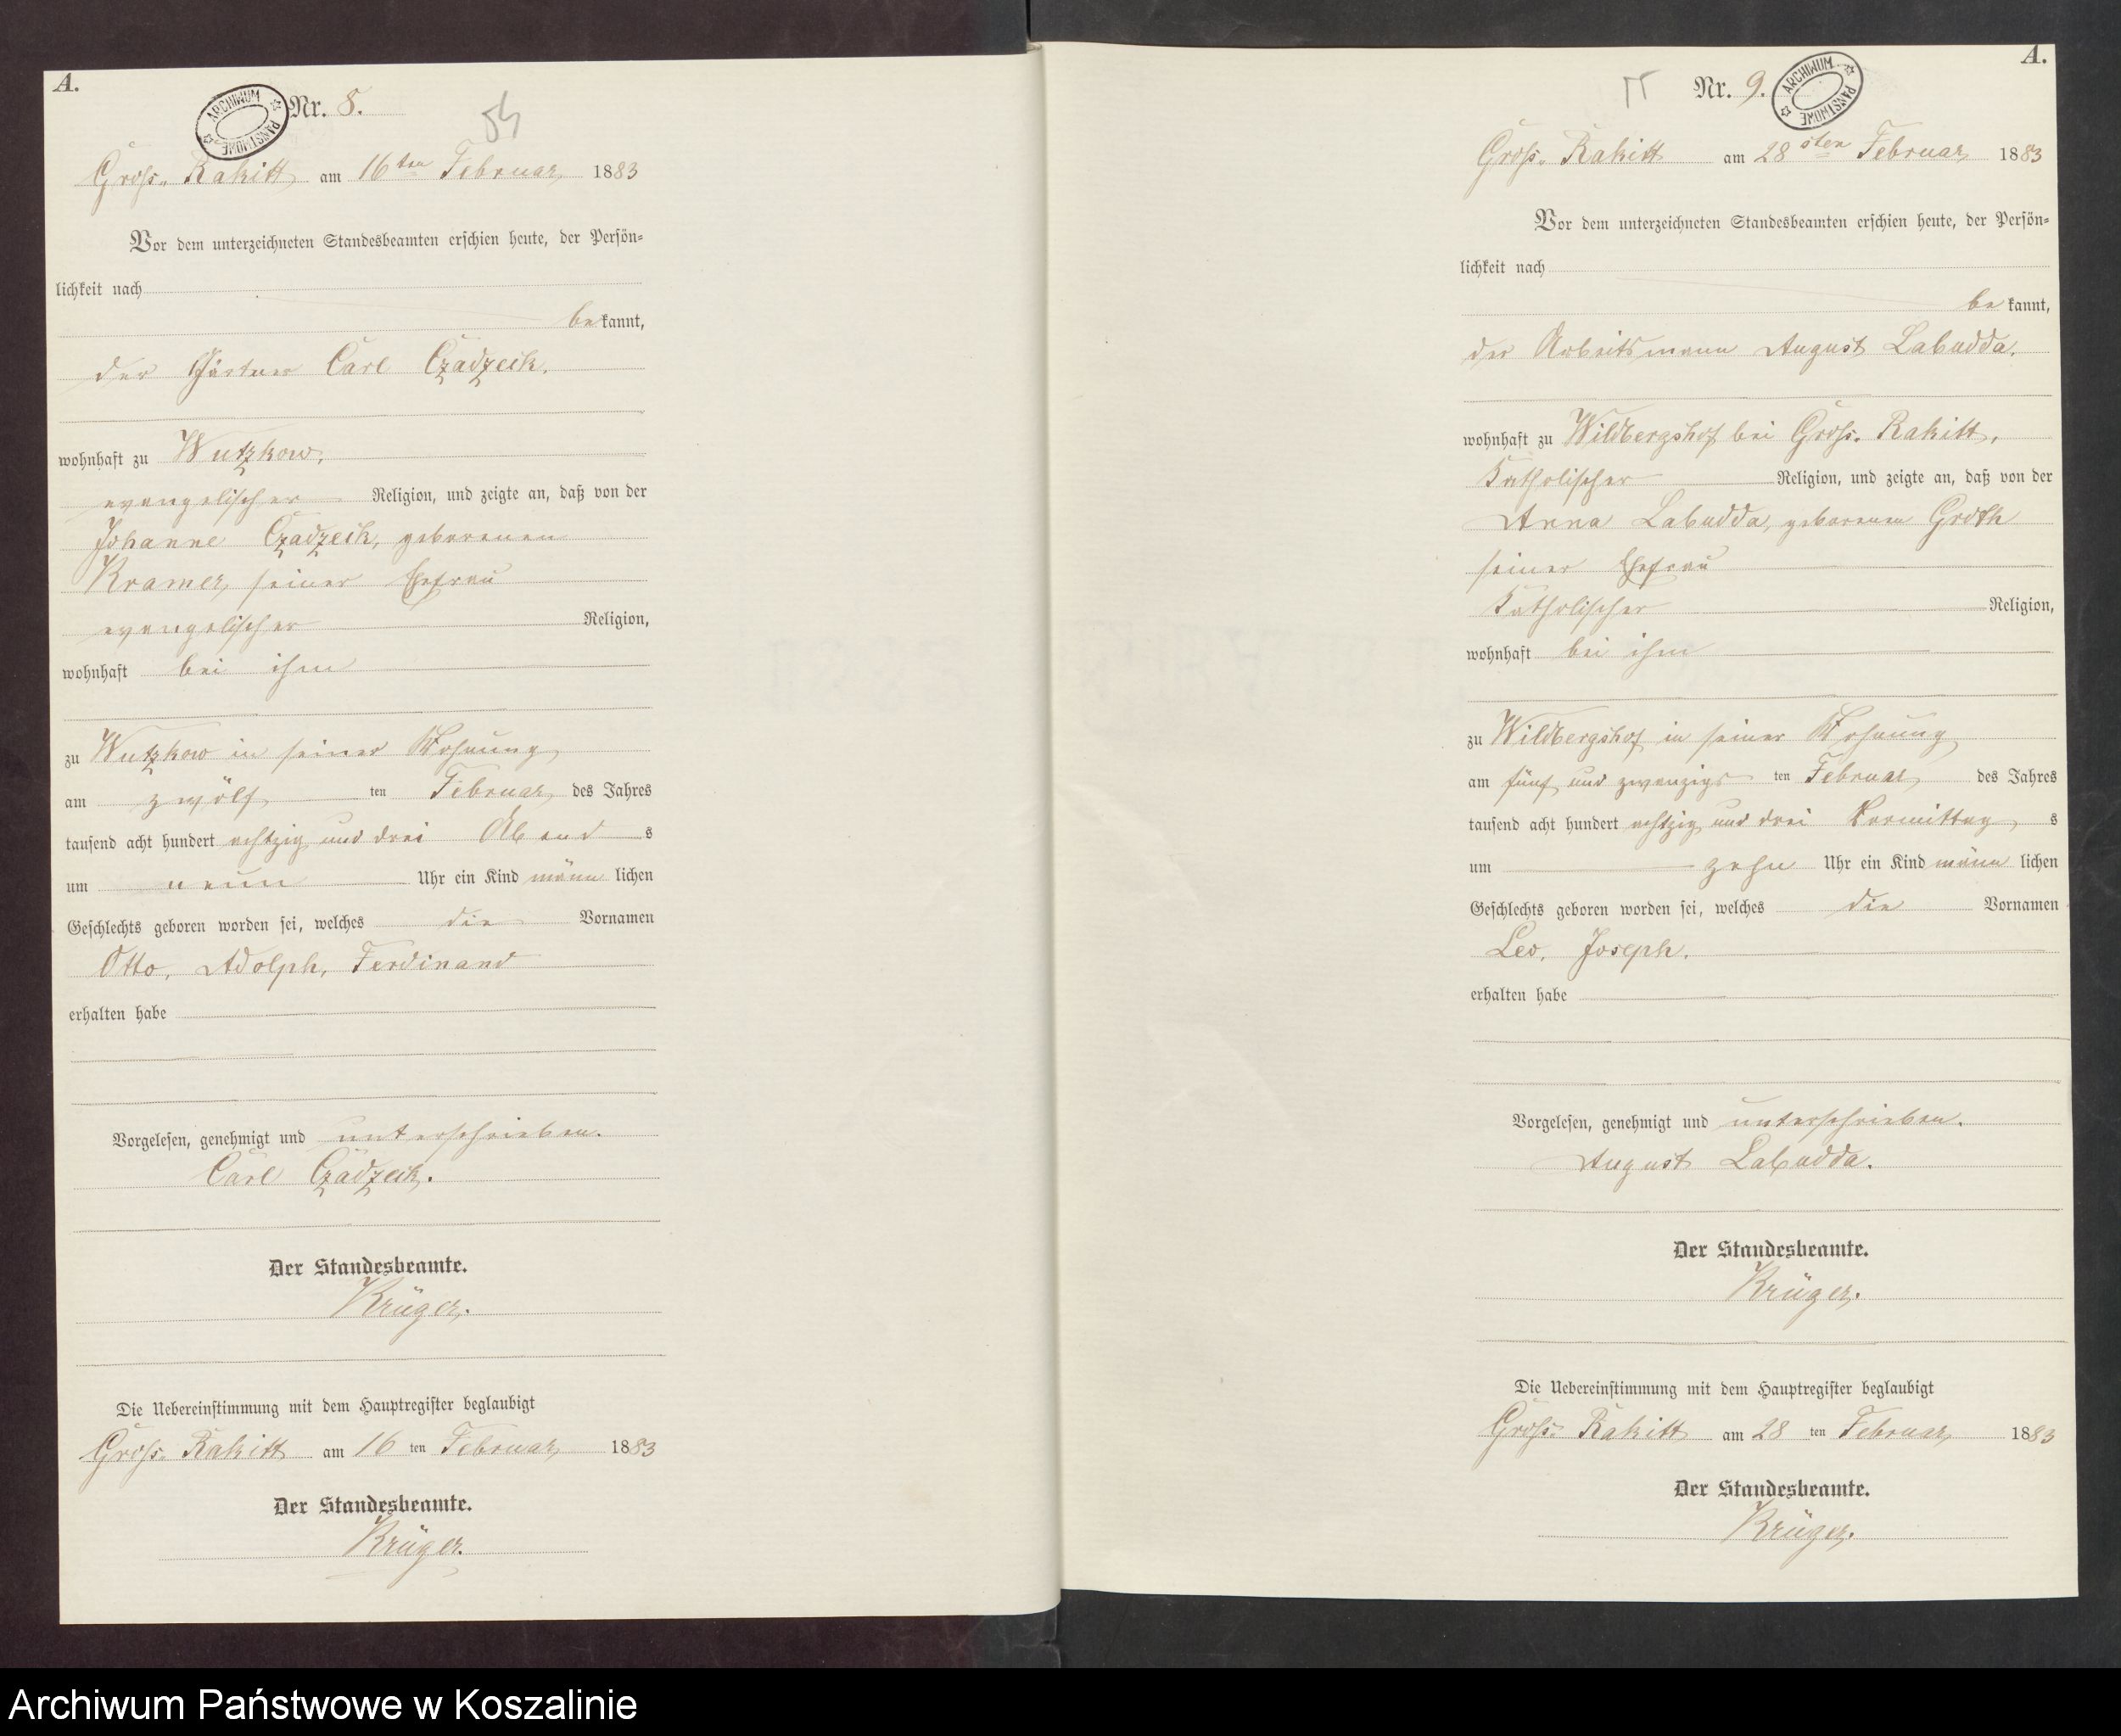 A.
Nr. 8.
ARCHIWUM PAŃSTWOWE
Groß-Rakitt am 16ten Februar 1883
Vor dem unterzeichneten Standesbeamten erschien heute, der Persön-
lichkeit nach
bekannt,
der Gärtner Carl Czadzeck.
wohnhaft zu Wutzkow,
evangelischer Religion, und zeigte an, daß von der
Johanne Czadzeck, geborenen
Kramer, seiner Ehefrau
evangelischer Religion,
wohnhaft bei ihm
zu Wutzkow in seiner Wohnung
am zwölf ten Februar des Jahres
tausend acht hundert achtzig und drei Abend s
um neun Uhr ein Kind männlichen
Geschlechts geboren worden sei, welches die Vornamen
Otto, Adolph, Ferdinand
erhalten habe
Vorgelesen, genehmigt und unterschrieben.
Carl Czadzeck.
Der Standesbeamte.
Krüger.
Die Uebereinstimmung mit dem Hauptregister beglaubigt
Groß-Rakitt am 16 ten Februar 1883
Der Standesbeamte.
Krüger.
A.
Nr. 9.
ARCHIWUM PAŃSTWOWE
Groß-Rakitt am 28sten Februar 1883
Vor dem unterzeichneten Standesbeamten erschien heute, der Persön-
lichkeit nach
bekannt,
der Arbeitsmann August Labudda.
wohnhaft zu Wildbergshof bei Groß-Rakitt,
Katholischer Religion, und zeigte an, daß von der
Anna Labudda, geborenen Groth
seiner Ehefrau
Katholischer Religion,
wohnhaft bei ihm
zu Wildbergshof in seiner Wohnung
am fünf und zwanzigs ten Februar des Jahres
tausend acht hundert achtzig und drei Vormittag s
um zehn Uhr ein Kind männlichen
Geschlechts geboren worden sei, welches die Vornamen
Leo, Joseph.
erhalten habe
Vorgelesen, genehmigt und unterschrieben.
August Labudda.
Der Standesbeamte.
Krüger.
Die Uebereinstimmung mit dem Hauptregister beglaubigt
Groß-Rakitt am 28 ten Februar 1883
Der Standesbeamte.
Krüger.
Archiwum Państwowe w Koszalinie